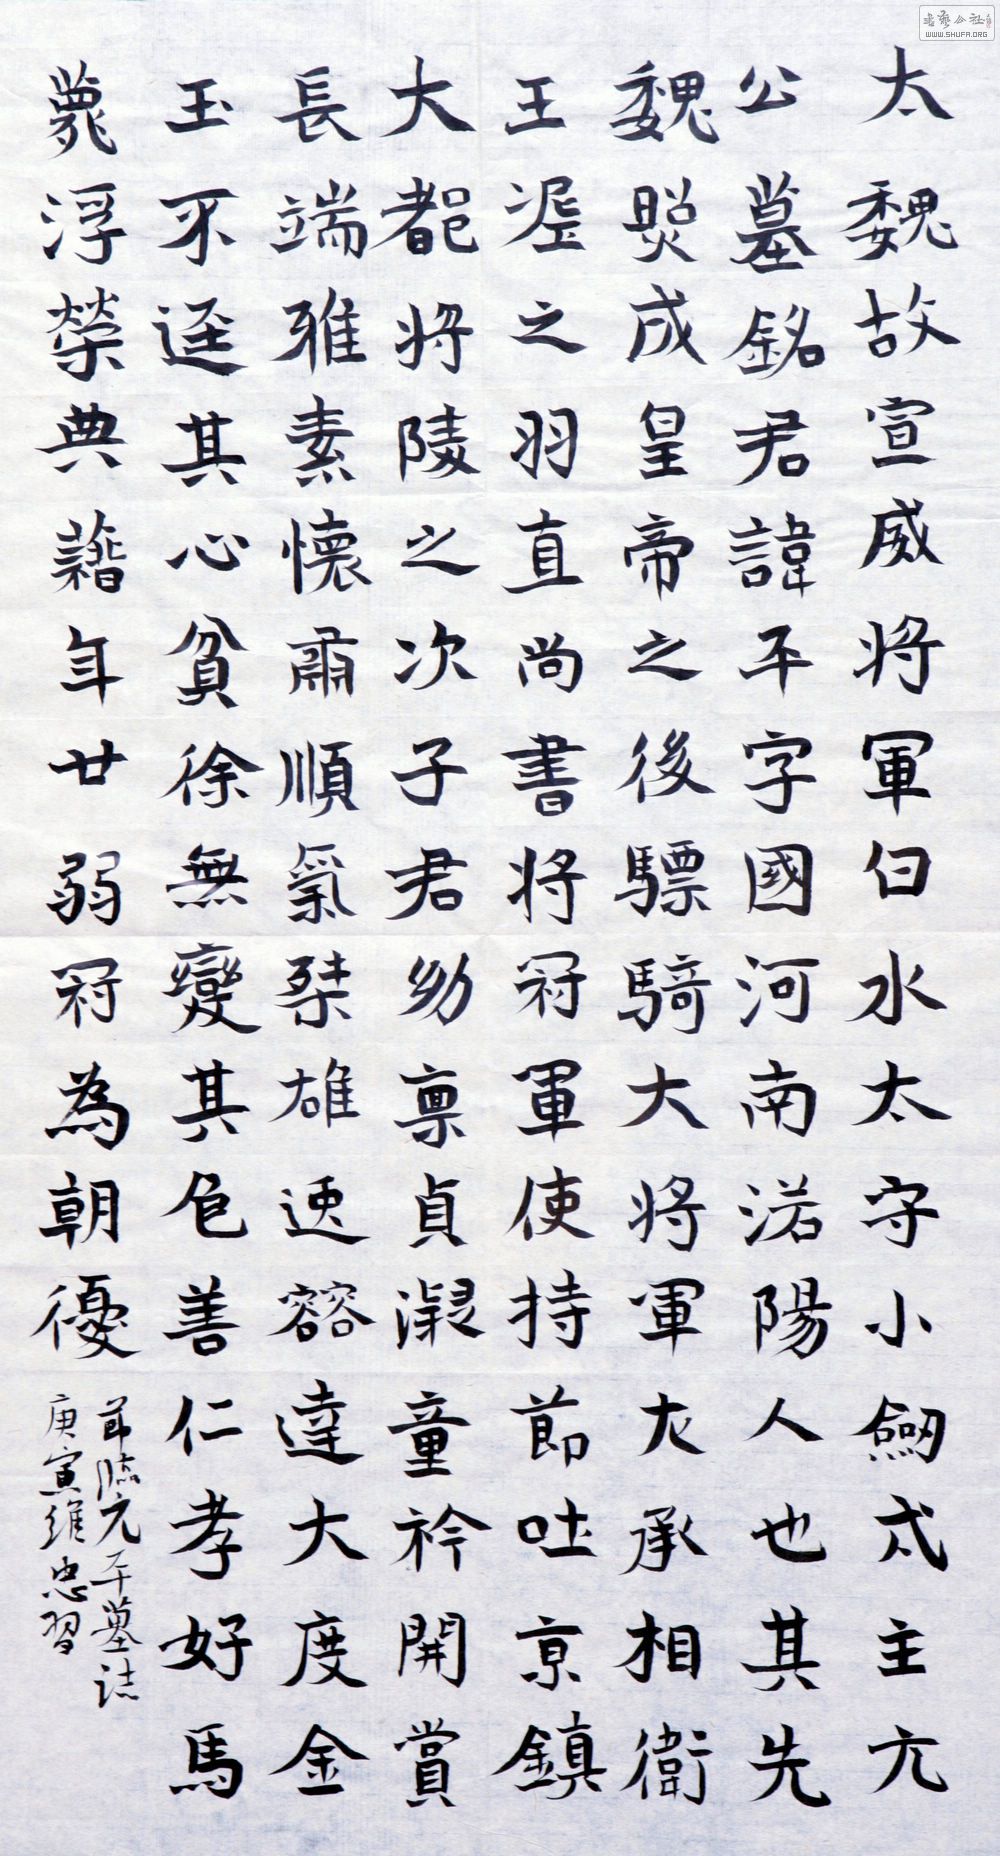 太魏故宣威將軍白水太守小劒戍主元
公墓銘君諱平字國河南洛陽人也其先
魏照成皇帝之後驃騎大將軍左承相衛
王渥之羽直尚書將冠軍使持節吐京鎮
大都將陵之次子君幼稟貞凝童衿開賞
長端雅素懷肅順氣桀雄速豁達大度金
玉不逕其心貧徐無變其色善仁孝好馬
薨浮榮典藉年廿弱冠為朝優
節臨元平墓誌
庚寅維忠習
WWW.SHUFA.ORG